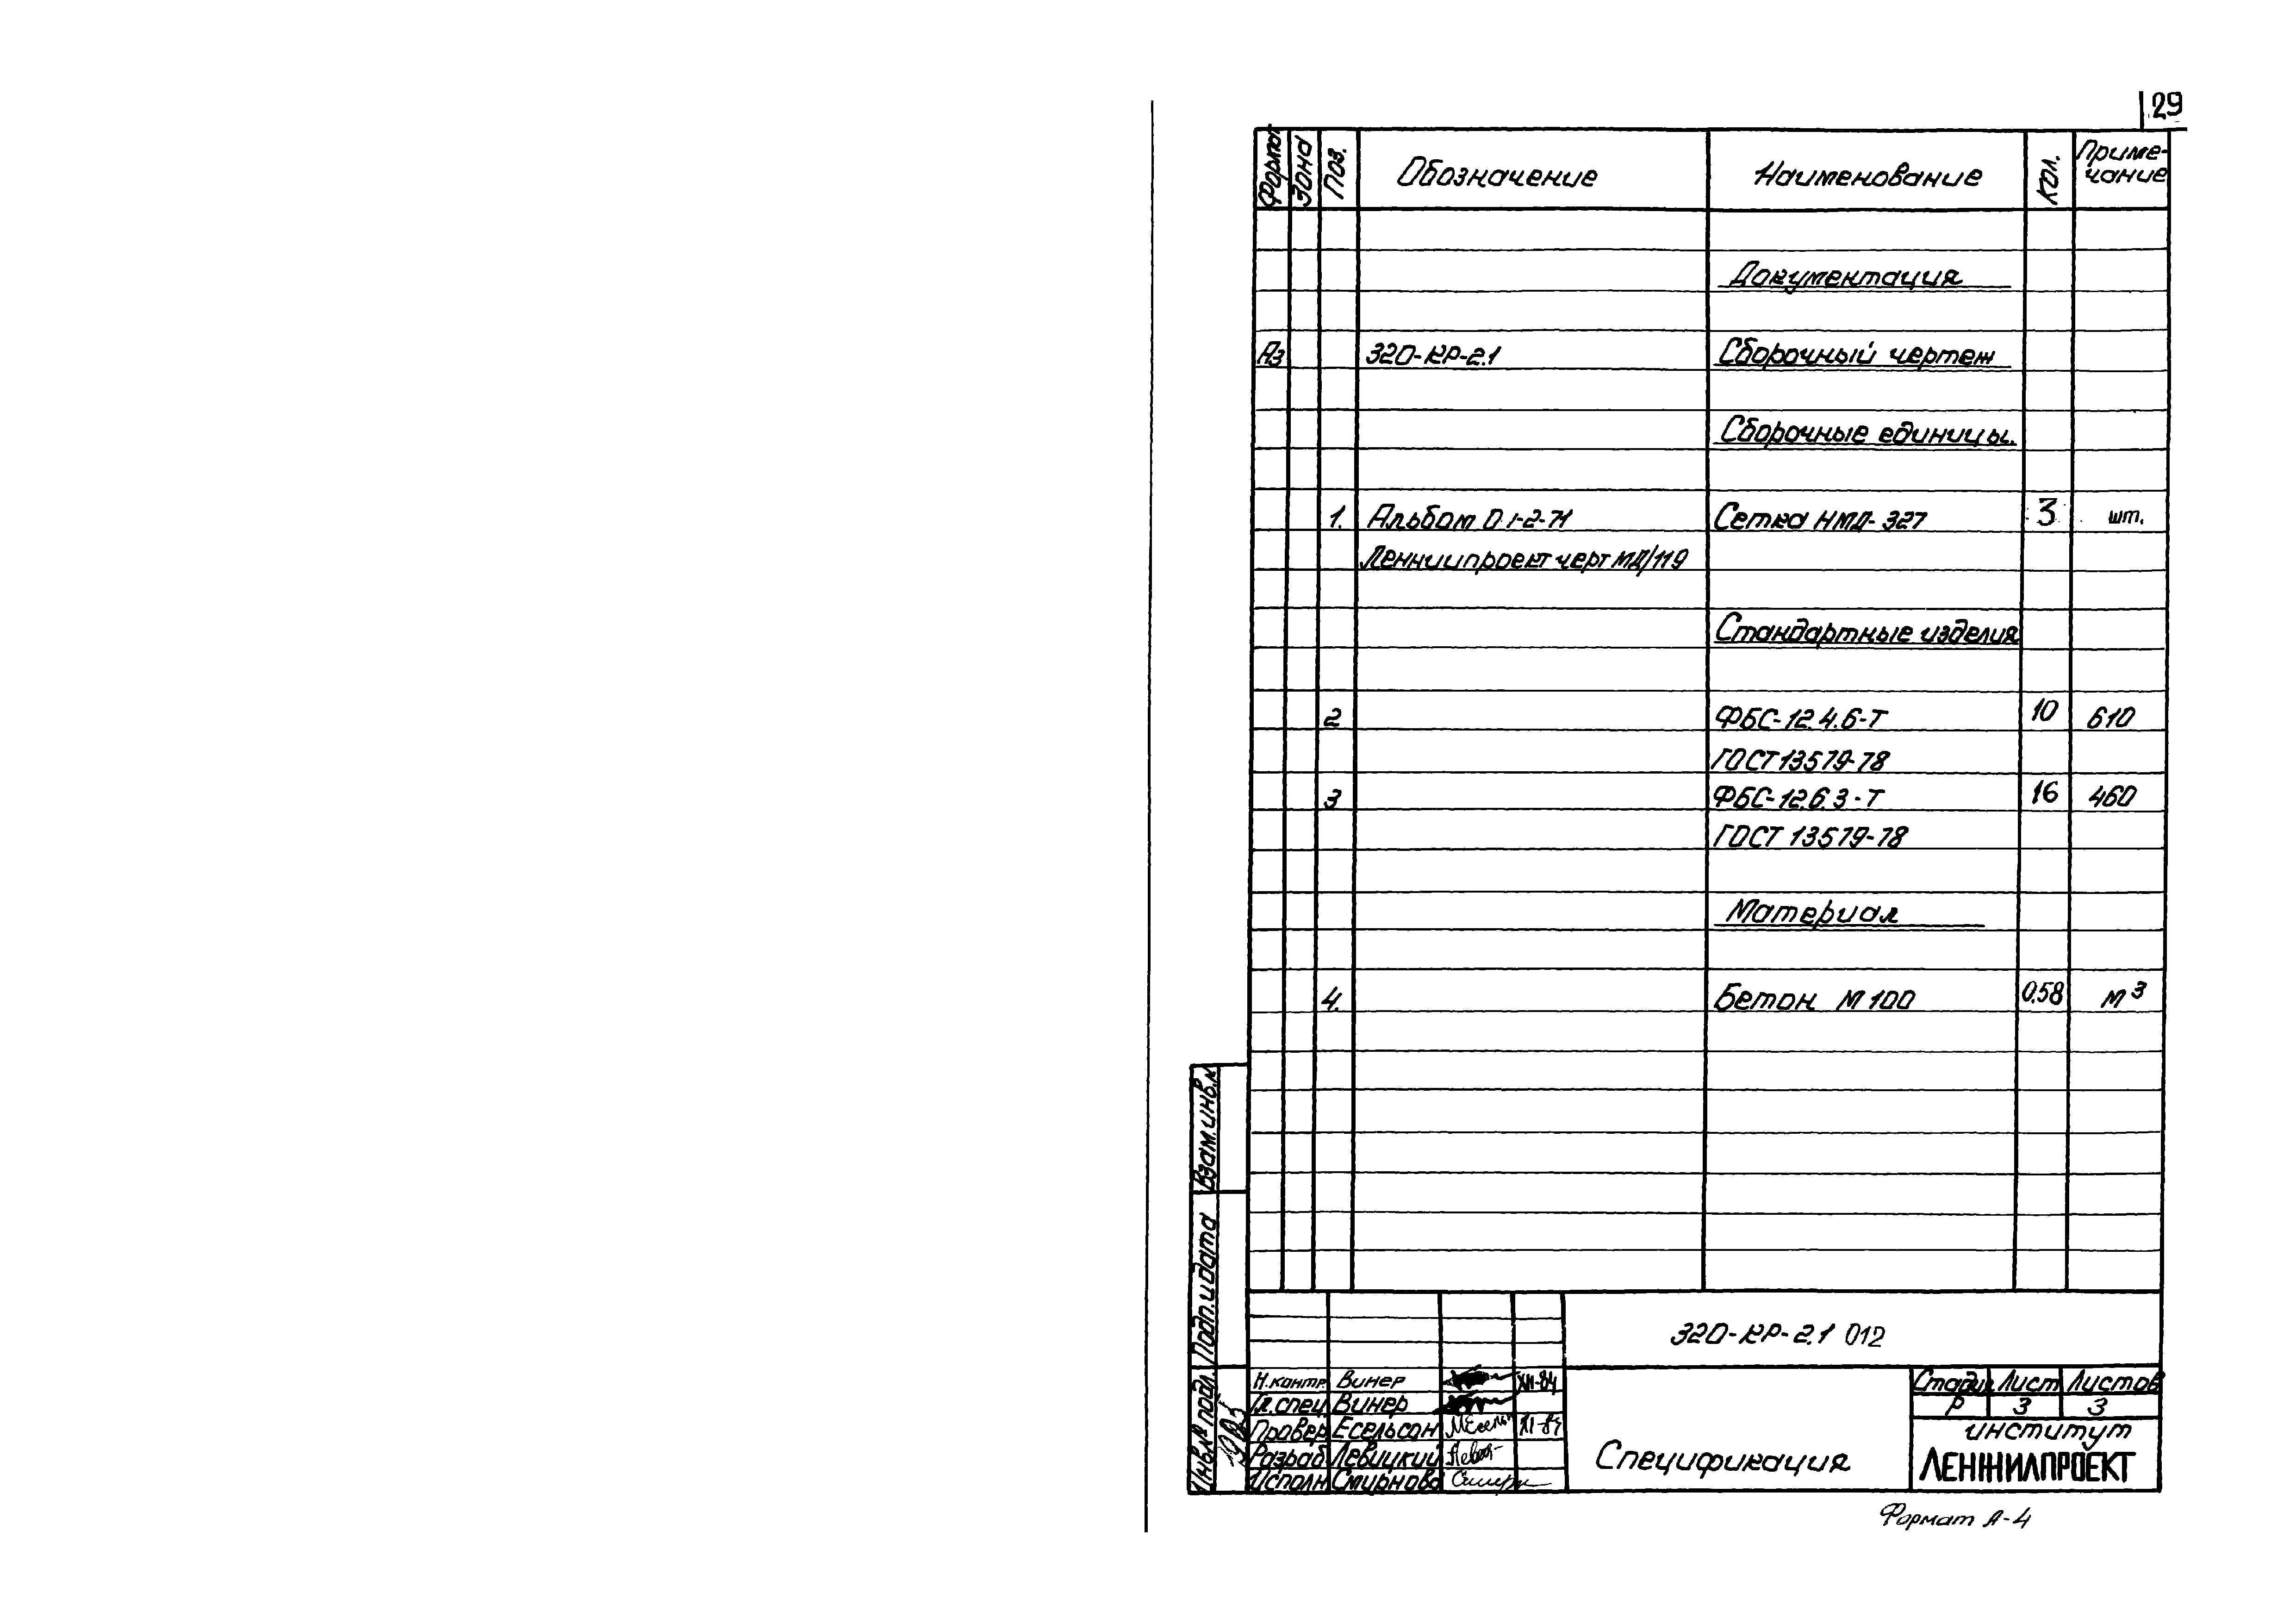 29
Формат Зона Поз. Обозначение Наименование Кол. Приме-
чание
Документация
А3 320-КР-2.1 Сборочный чертеж
Сборочные единицы.
1. Альбом 0.1-2-71 Сетка НМД-327 3 шт.
Ленниипроект черт МД/119
Стандартные изделия
2 ФБС-12.4.6-Т 10 610
ГОСТ 13579-78
3 ФБС-12.6.3-Т 16 460
ГОСТ 13579-78
Материал
4. Бетон М100 0,58 м³
Взам.инв.№
Подп.и дата
Инв.№ подл.
320-КР-2.1 012
Н.контр. Винер XII-84
Гл.спец Винер
Провер Есельсон XI-84
Разраб Левицкий
Исполн Смирнова
Спецификация
Стадия Лист Листов
Р 3 3
институт
ЛЕНЖИЛПРОЕКТ
Формат А-4